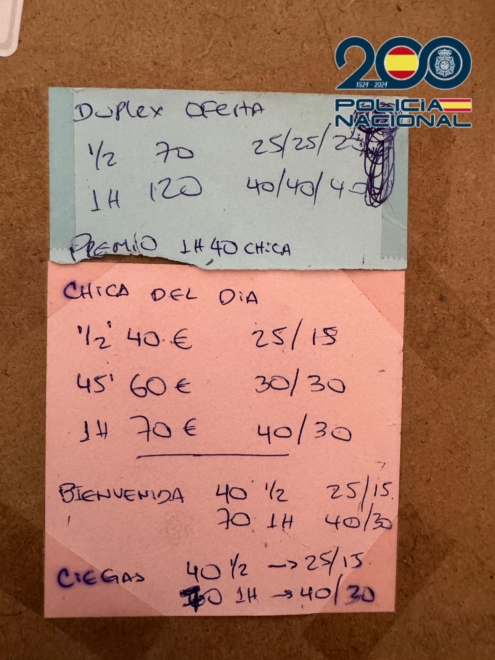 200
1824 - 2024
POLICÍA
NACIONAL
DUPLEX OFERTA
1/2 70 25/25/20
1H 120 40/40/40
PREMIO 1H 40 CHICA
CHICA DEL DIA
1/2' 40 € 25/15
45' 60 € 30/30
1H 70 € 40/30
BIENVENIDA 40 1/2 25/15
70 1H 40/30
CIEGAS 40 1/2 → 25/15
70 1H → 40/30